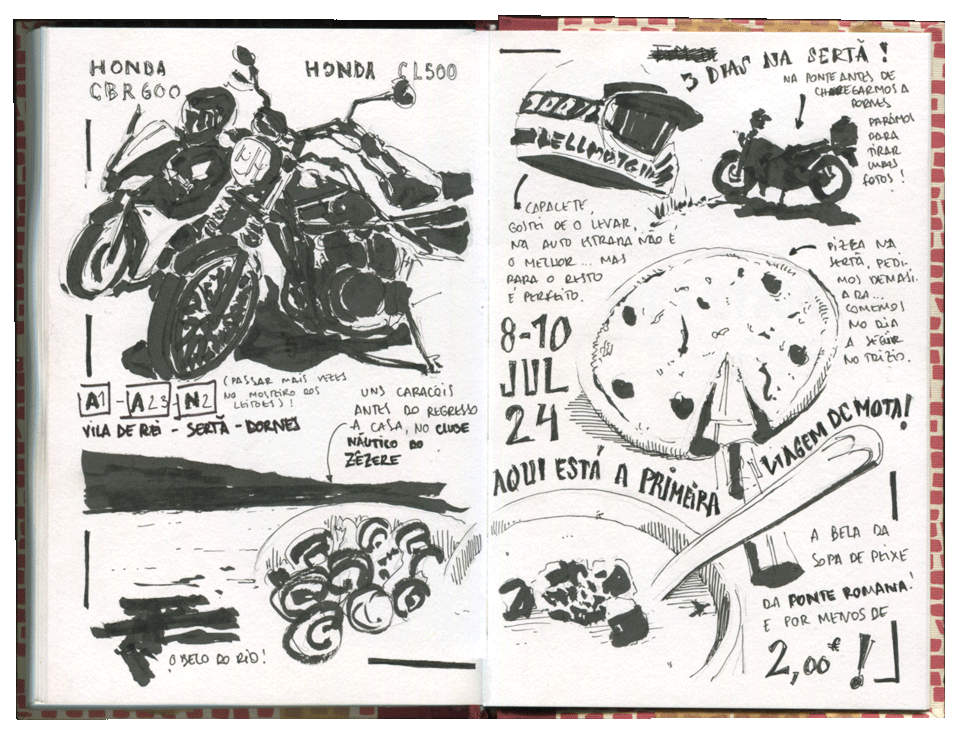 HONDA
CBR600
HONDA CL500
A1 - A23 - N2
(PASSAR MAIS VEZES
NO MOSTEIRO DOS
LEITÕES)!
VILA DE REI - SERTÃ - DORNES
UNS CARACÓIS
ANTES DO REGRESSO
A CASA, NO CLUBE
NÁUTICO DO
ZÊZERE
O BELO DO RIO!
3 DIAS NA SERTÃ!
NA PONTE ANTES DE
CHEGARMOS A
DORNES
PARÁMOS
PARA
TIRAR
UMAS
FOTOS!
BELLMOTO
CAPACETE,
GOSTEI DE O LEVAR,
NA AUTO ESTRADA NÃO É
O MELHOR... MAS
PARA O RESTO
É PERFEITO.
PIZZA NA
SERTÃ, PEDI-
MOS DEMASI-
ADA...
COMEMOS
NO DIA
A SEGUIR
NO TRIZIO.
8-10
JUL
24
AQUI ESTÁ A PRIMEIRA
VIAGEM DC MOTA!
A BELA DA
SOPA DE PEIXE
DA PONTE ROMANA!
E POR MENOS DE
2,00€!